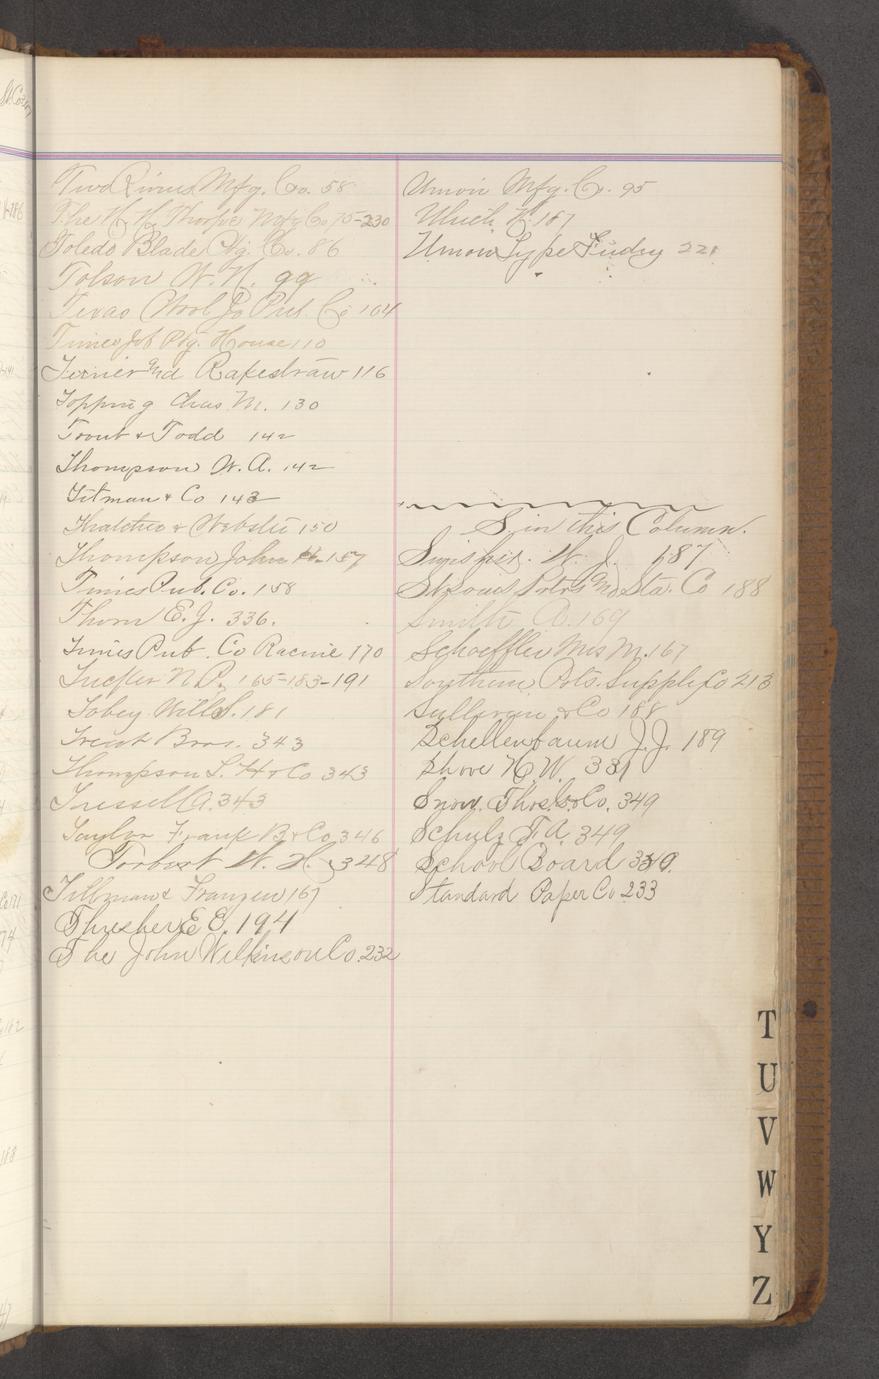 Two Rivers Mfg. Co. 58
The H. H. Thorpe Mfg Co 75-230
Toledo Blade Ptg. Co. 86
Tolson W. H. 99
Texas Wool Jo Pub Co 104
Times Job Ptg. House 110
Terrier and Rakestraw 116
Topping Chas M. 130
Trout & Todd 142
Thompson W. A. 142
Titman & Co 143
Thatcher & Webster 150
Thompson John 157
Times Pub. Co. 158
Thorn E. J. 336.
Times Pub. Co Racine 170
Tucker N. P. 165-183-191
Tobey Will S. 181
Treat Bros. 343
Thompson L. H & Co 343
Tressell A. 343
Taylor Frank B & Co 346
Torbert W. H. 348
Tillman & Franzen 167
Thresher E E. 194
The John Wilkinson Co. 232
Union Mfg. Co. 95
Ulrich H. 167
Union Type Fndry 221
S in this Column.
W. J. 187
Stroud Prtrs and Sta. Co 188
Smith A. 169
Schoeffler Mrs M. 167
Southern Prts. Supply Co 213
Sullivan & Co 188
Schellenbaum J. J. 189
Shove H. W. 331
Snow. Thos. & Co. 349
Schulz F. A. 349
School Board
Standard Paper Co 233
T
U
V
W
Y
Z